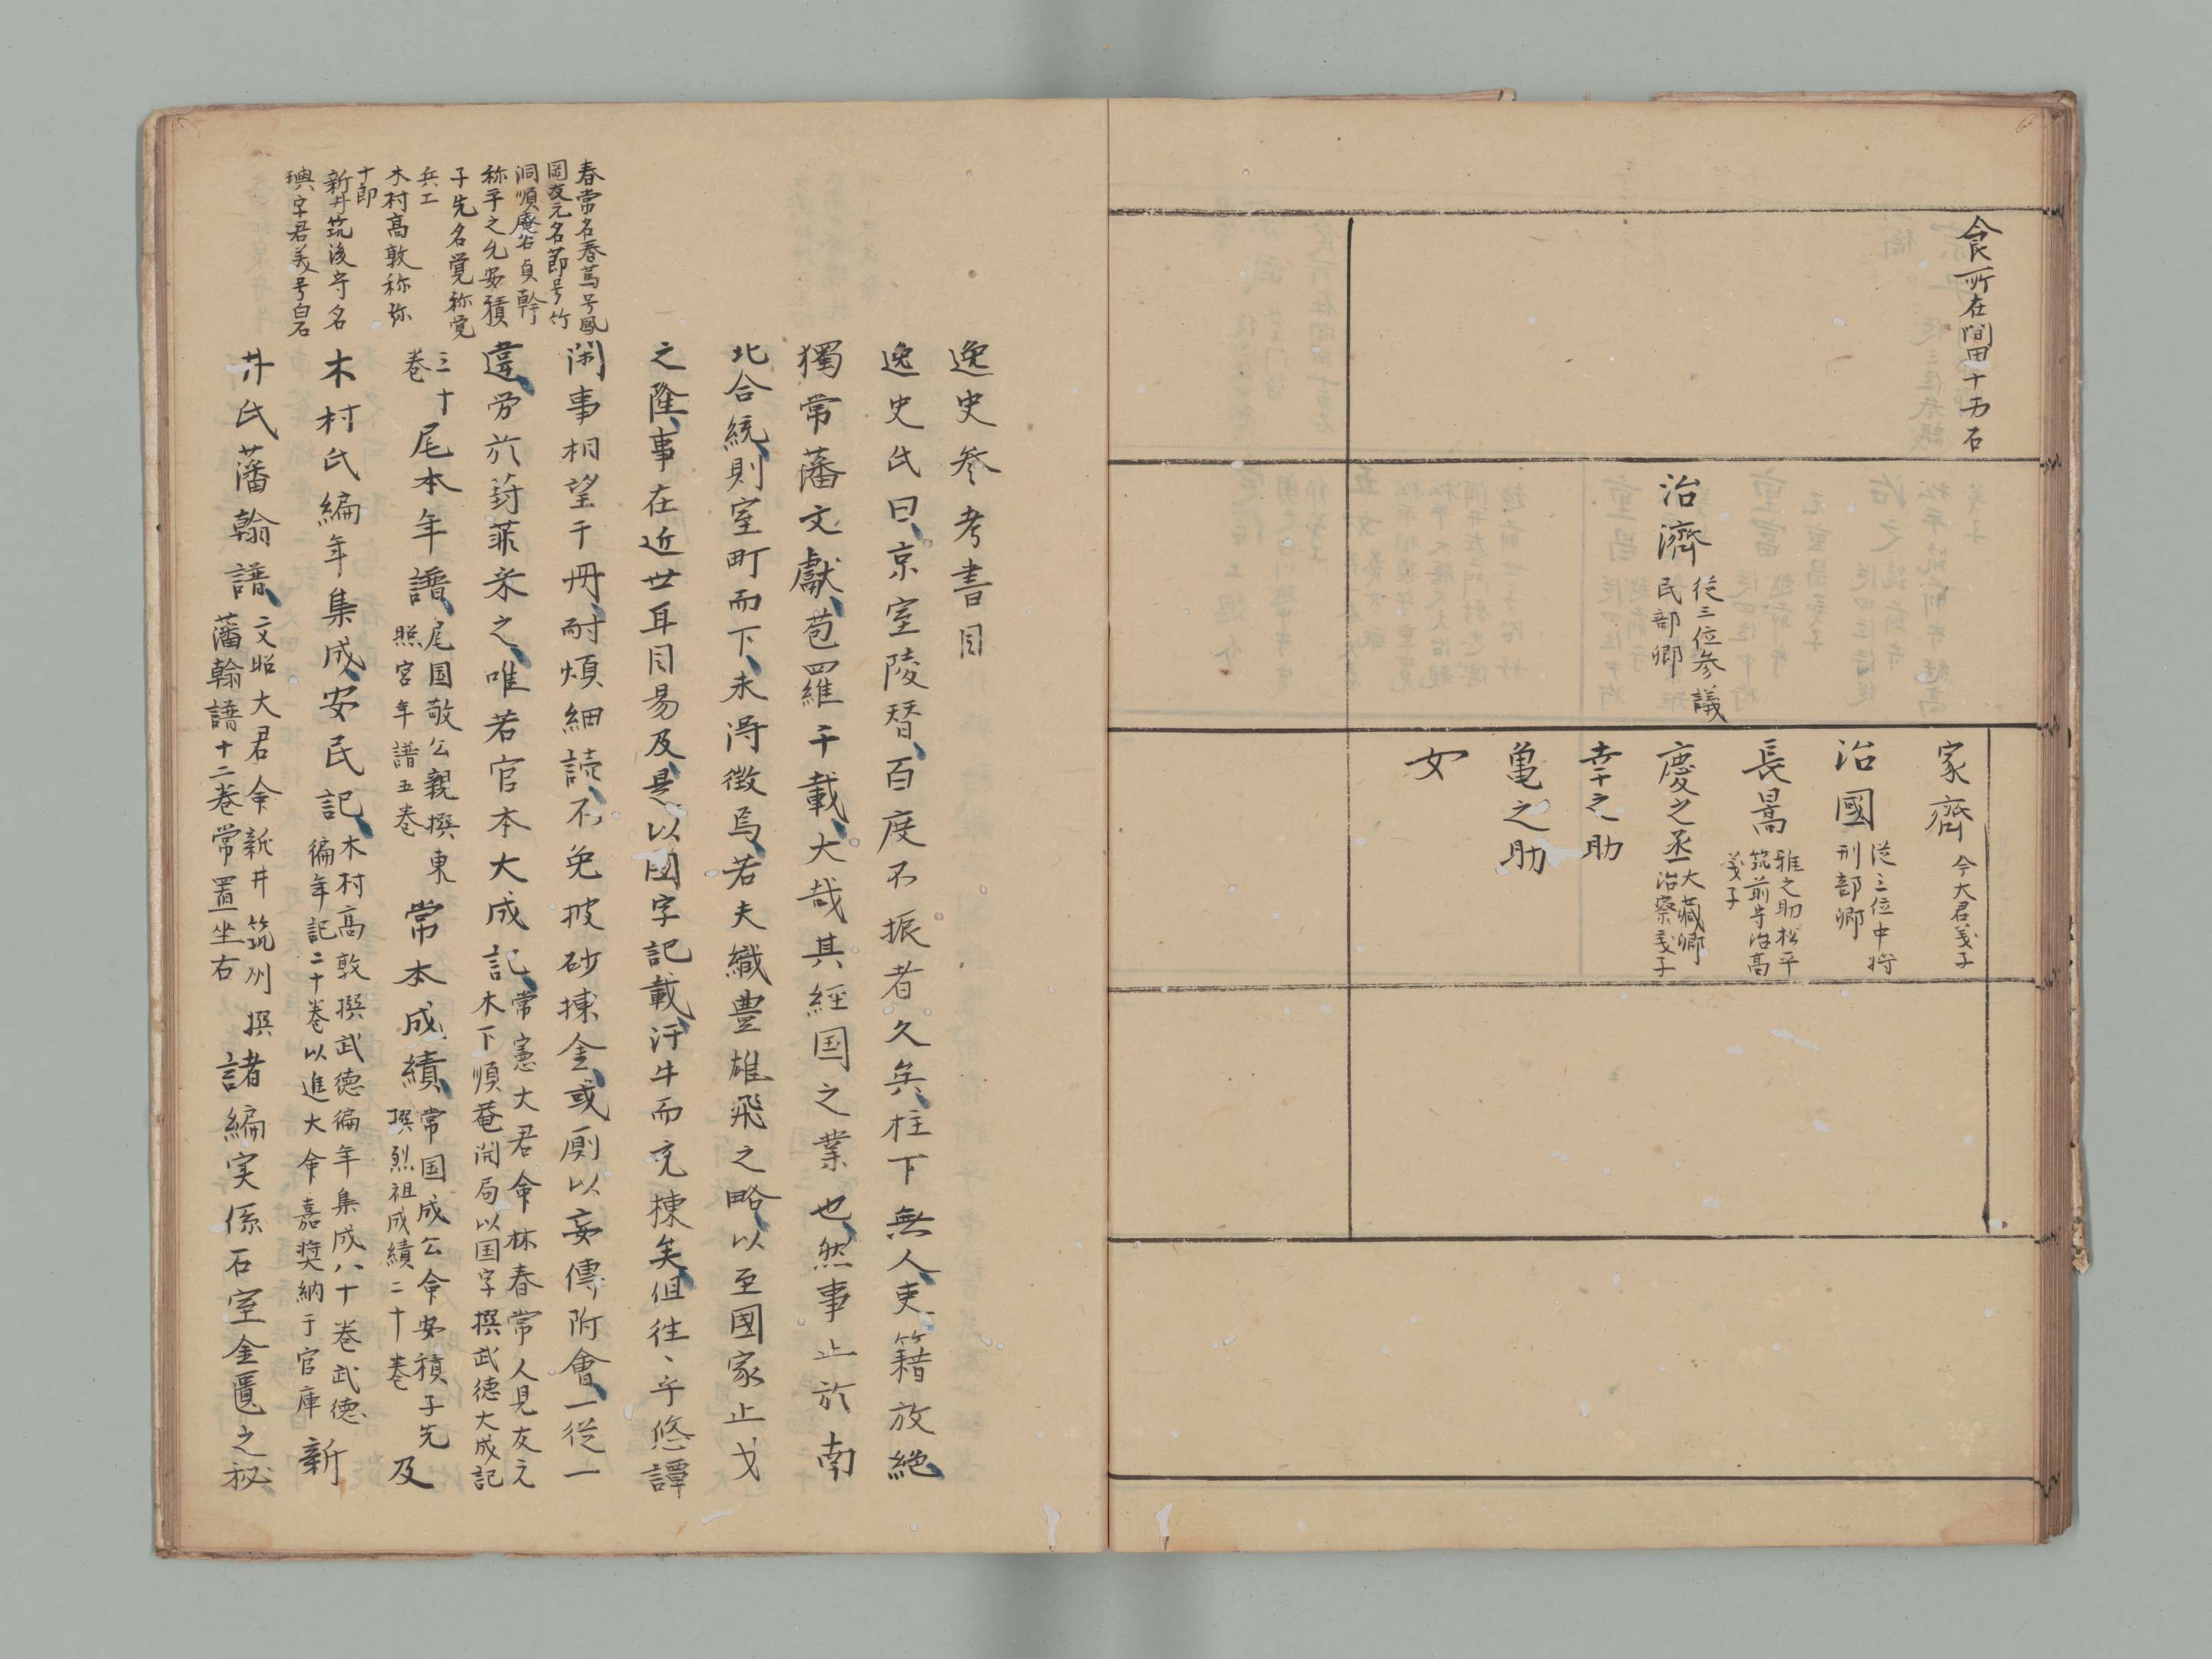 食所在間田十万石
治濟
從三位参議
民部卿
家齊
今大君義子
治國
從三位中将
刑部卿
長暠
雅之助松平
筑前守治高
義子
慶之丞
大藏卿
治察義子
幸之助
亀之助
女
逸史参考書目
逸史氏曰、京室陵替、百度不振者久矣、柱下無人、吏籍放絶、
獨常藩文獻、苞羅千載、大哉其經国之業也、然事止於南
北合統、則室町而下、未淂徴焉、若夫織豊雄飛之略、以至國家止戈
之隆、事在近世耳目易及、是以國字記載、汗牛而充棟矣、但往〻乎悠譚
閑事相望千冊、耐煩細読、不免披砂揀金、或厠以妄傳附會、一從一
違、労於葑菲采之、唯若官本大成記、
常憲大君命林春常人見友元
木下順菴開局以国字撰武徳大成記
三十
巻
尾本年譜、
尾国敬公親撰東
照宮年譜五巻
常本成績、
常国成公命安積子先
撰烈祖成績二十巻
及
木村氏編年集成、安民記、
木村高敦撰武徳徧年集成八十巻武徳
徧年記二十巻以進大命嘉奨納于官庫
新
井氏藩翰譜、
文昭大君命新井筑州撰
藩翰譜十二巻常置坐右
諸編実係石室金匱之秘
春常名春篤号鳳
岡友元名節号竹
洞順庵名貞幹
称平之允安積
子先名覚称覚
兵工
木村高敦称弥
十郎
新井筑後守名
璵字君美号白石